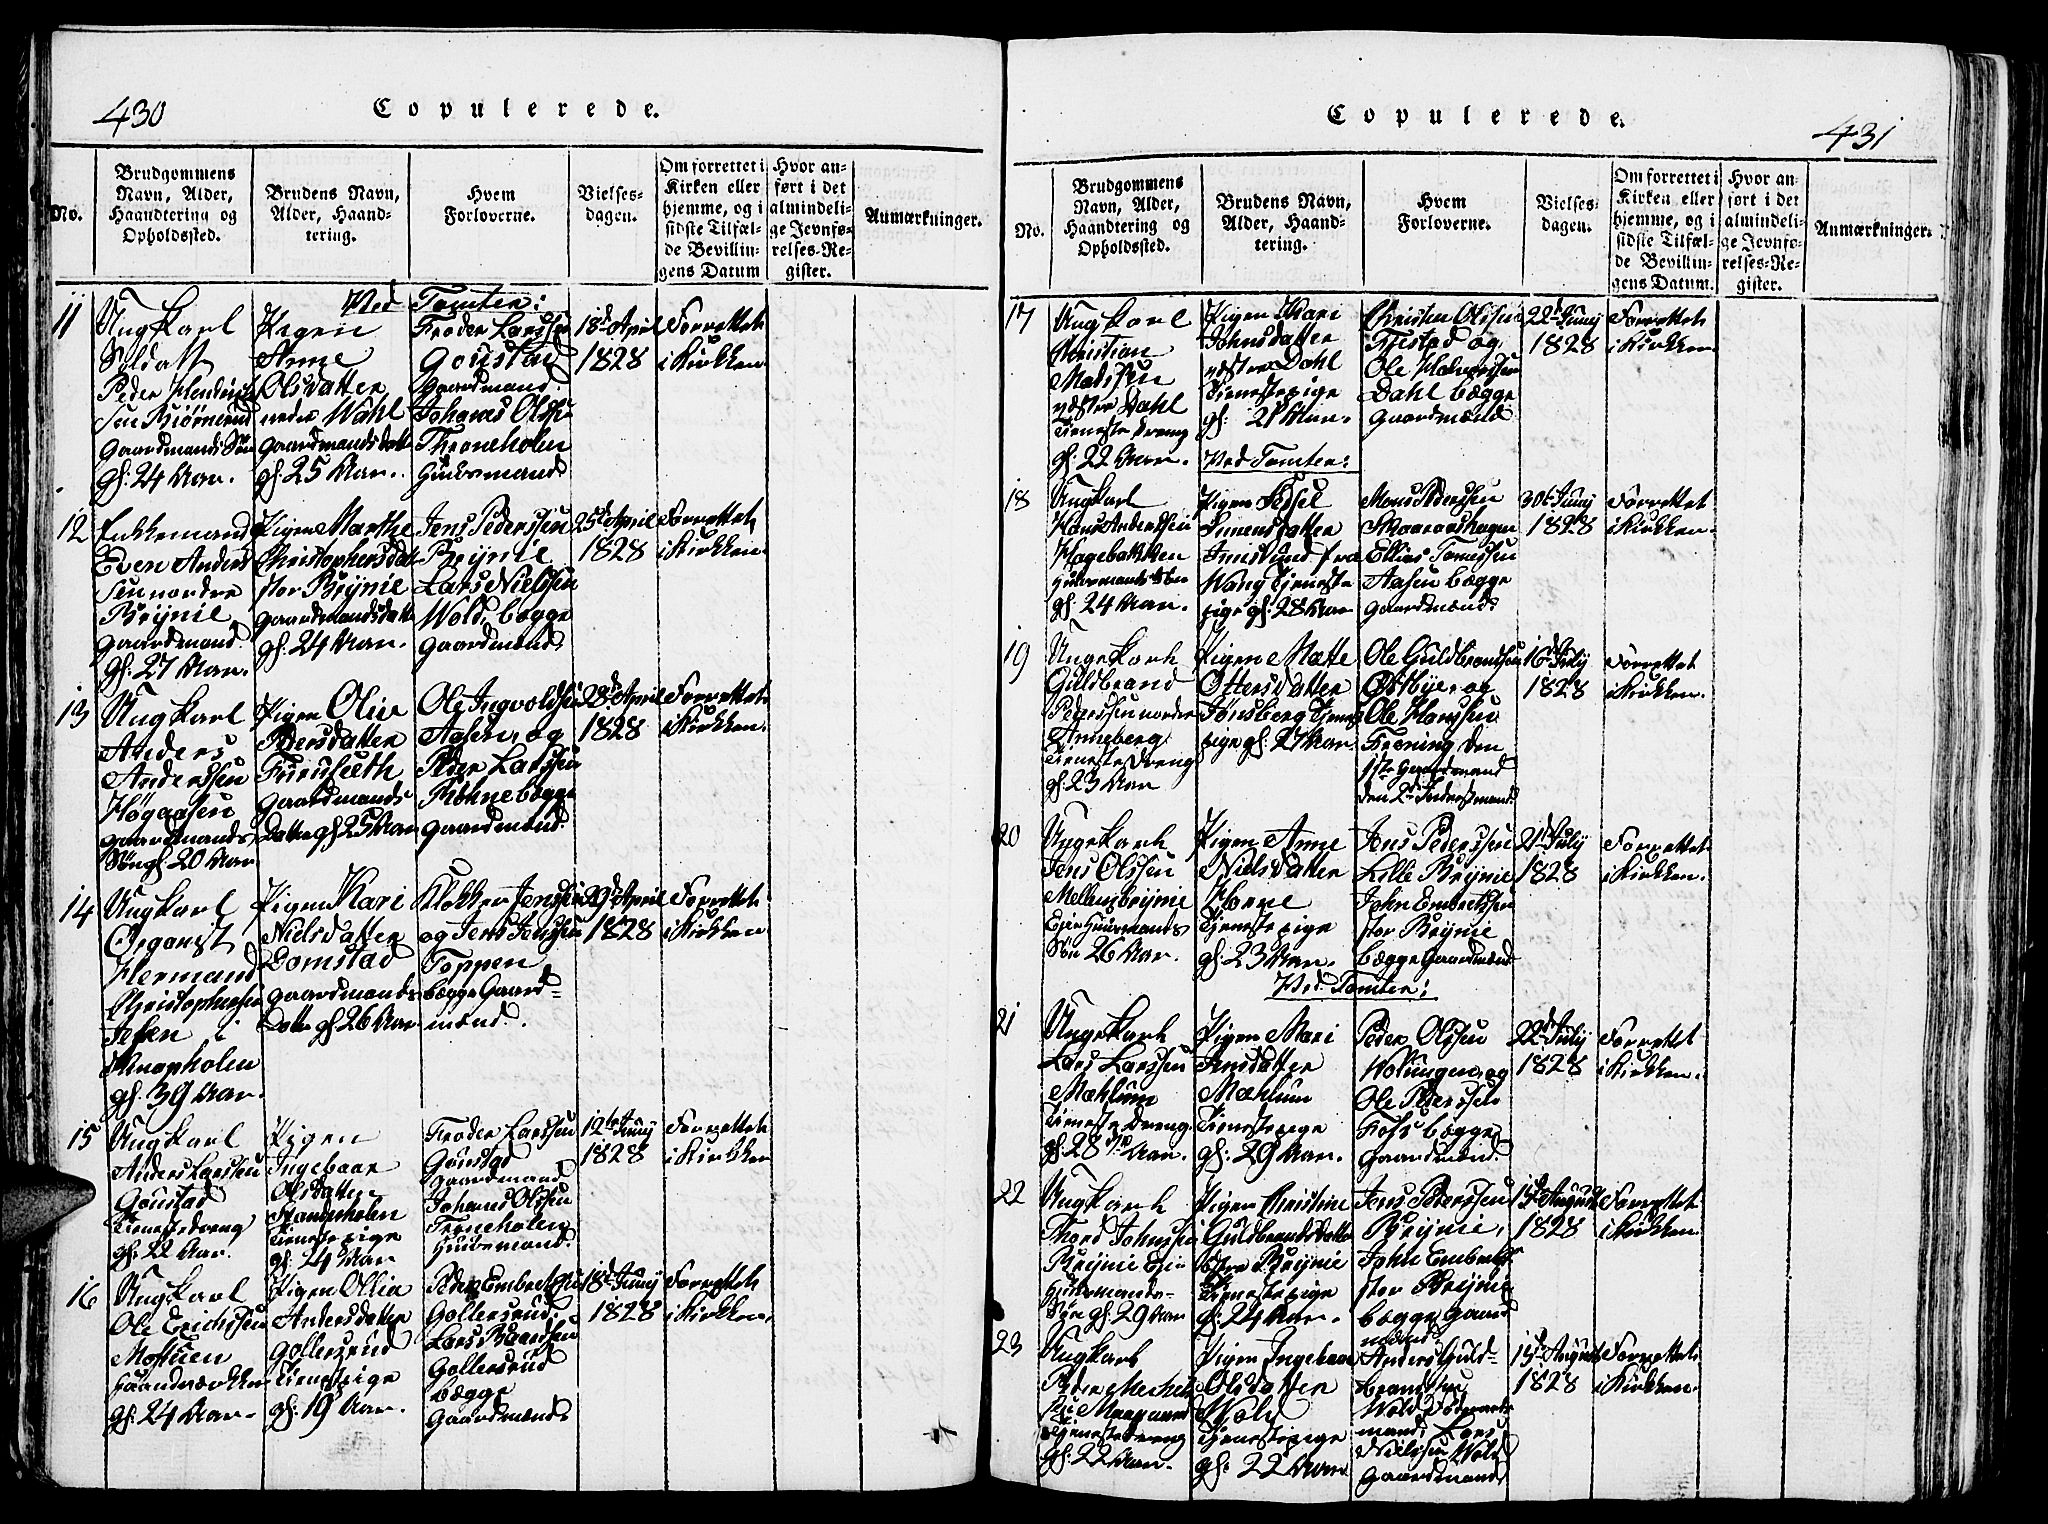 430
Copulerede.
No.
Brudgommens
Navn, Alder,
Haandtering og
Opholdssted.
Brudens Navn,
Alder, Haand-
tering.
Hvem
Forloverne.
Vielses-
dagen.
Om forrettet i
Kirken eller
hjemme, og i
sidste Tilfæl-
de Bevillin-
gens Datum
Hvor an-
ført i det
almindeli-
ge Jevnfø-
relses-Re-
gister.
Anmærkninger.
Ved Tomten:
11
Ungkarl
Soldatt
Peder Hendrich
sen Biørnerud
Gaardmands Søn
gl: 24 Aar.
Pigen
Anne
Olsdatter
nedre Wahl
gaardmandsdatt
gl: 25 Aar.
Froder Larssen
Goustad
Gaardmand
Johanes Olssen
Throneholen
Huusmand
18de April
1828
Forrettet
i Kirkken
12
Enkkemand
Even Anders
sen nordre
Brynie
gaardmand
gl: 27 Aar.
Pigen Marthe
Christophersdatt
stor Brynie
gaardmandsdatte
gl: 24 Aar.
Jens Pederssen
Brynie
Lars Nielssen
Wold, begge
gaardmænd
25de April
1828
Forrettet
i Kirkken.
13
Ungkarl
Anders
Anderssen
Høgaasen
gaardmands
Søn gl. 20 Aar
Pigen Olia
Pedersdatter
Furuseeth
Gaardmands
Datter gl 25 Aar
Ole Ingvoldsen
Aasen, og
Peder Larssen
Kiøhne begge
gaardmænd.
28de April
1828
Forrettet
i Kirkken.
14
Ungkarl
Organist
Hermand
Christophersen
Jessen i
Knapholen
gl. 39 Aar.
Pigen Kari
Nielsdatter
Domstad
gaardmands
Datter gl 26 Aar
Klokker Jenssen
og Jens Jenssen
Toppen
begge Gaard=
mænd.
29de April
1828
Forrettet
i Kirkken
15
Ungkarl
Anders Larssen
Goustad
Tienestedreng
gl. 22 Aar.
Pigen
Ingebaar
Olsdatter
Stampeholen
Tienestepige
gl. 24 Aar
Froder Larssen
Goustad
gaardmand
Johanes Olssen
Troneholen
Huusmand.
12te Juny
1828
Forrettet
i Kirkken
16
Ungkarl
Ole Erichssen
Mostuen
haandværkker
gl. 24 Aar.
Pigen Ollia
Andersdatter
Gollersrud
Tienestpige
gl. 19 Aar.
Peder Embretssen
Gollersrud
Lars Baardsen
Gollersrud
begge
Gaardmænd
18de Juny
1828
Forrettet
i Kirkken.
Copulerede.
431
No.
Brudgommens
Navn, Alder,
Haandtering og
Opholdssted.
Brudens Navn,
Alder, Haand-
tering.
Hvem
Forloverne.
Vielses-
dagen.
Om forrettet i
Kirken eller
hjemme, og i
sidste Tilfæl-
de Bevillin-
gens Datum.
Hvor an-
ført i det
almindeli-
ge Jevnfø-
relses-Re-
gister.
Anmærkninger.
17
Ungkarl
Christian
Madssen
ydstre Dahl
Tieneste dreng
gl. 22 Aar.
Pigen Kari
Johnsdatter
ydstre Dahl
Tienestepige
gl: 21 Aar.
Christen Olssen
Tiestad og
Ole Halvorssen
Dahl begge
gaardmænd
22de Juny
1828
Forrettet
i Kirkken.
Ved Tomten:
18
Ungkarl
Hans Anderssen
Hagebakken
Huusmands Søn
gl. 24 Aar.
Pigen Sessel
Simensdatter
fra
Wang Tjeneste
pige gl. 28 Aar
Mons Pederssen
Skaarashagen
Ellias Tomessen
Aasen begge
gaardmænd
30te Juny
1828
Forrettet
i Kirkken
19
Ungekarl
Guldbrand
Pederssen nordre
Anneberg
Tienestedreng
gl. 23 Aar
Pigen Mette
Ottersdatter
Jønsberg Tjeneste
pige gl. 27 Aar
Ole Guldbrandssen
Østbye, og
Ole Hanssen
Frening den
1ste Gaardmand
den 2de Inderstmand
16de July
1828
Forrettet
i Kirkken.
20
Ungekarl
Jens Olssen
Mellembrynie
Eje Huusmands
Søn 26 Aar.
Pigen Anne
Nielsdatter
Horne
Tjenestepige
gl. 23 Aar.
Jens Pederssen
Lille Brynie
John Embretssen
stor Brynie
begge Gaardmænd
21de July
1828
Forrettet
i Kirkken.
Ved Tomten:
21
Ungekarl
Lars Larssen
Mæhlum
Tieneste Dreng
gl. 28 Aar.
Pigen Mari
Jensdatter
Mæhlum
Tienestepige
gl. 29 Aar.
Peder Olssen
Wolungen, og
Ole Pederssen
Foss begge
Gaardmænd.
22de July
1828
Forrettet
i Kirkken.
22
Ungkarl
Thord Johnssen
Brynie Ejer
Huusmands
Søn gl. 29 Aar
Pigen Christine
Guldbrandsdatter
østre Brynie
Tienestepige
gl. 24 Aar.
Jens Pederssen
Brynie,
John Embretss
stor Brynie
begge gaard
mænd.
15de August
1828
Forrettet
i Kirkken.
23
Ungkarl
Peder Mechels
sen
Tjenestedreng
gl. 22 Aar.
Pigen Ingebaar
Olsdatter
Wold
Tjenestepige
gl. 22 Aar
Anders Guld-
brandssen
Wold
mand, Lars
Nielssen Wold
Gaardmænd
15de August
1828
Forrettet
i Kirkken.